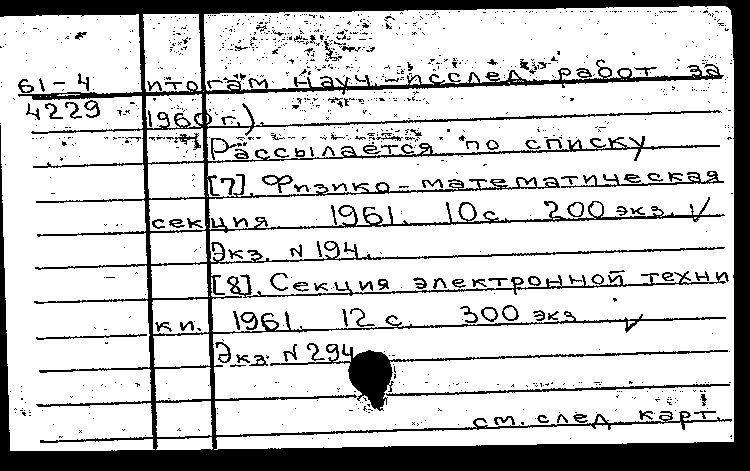 61-4 итогам науч.-исслед. работ за
4229 1960 г.).
Рассылается по списку
[7]. Физико-математическая
секция 1961. 10 с. 200 экз. √
Экз. N 194.
[8]. Секция электронной техни
ки. 1961. 12 с. 300 экз √
Экз. N 294
см. след. карт.